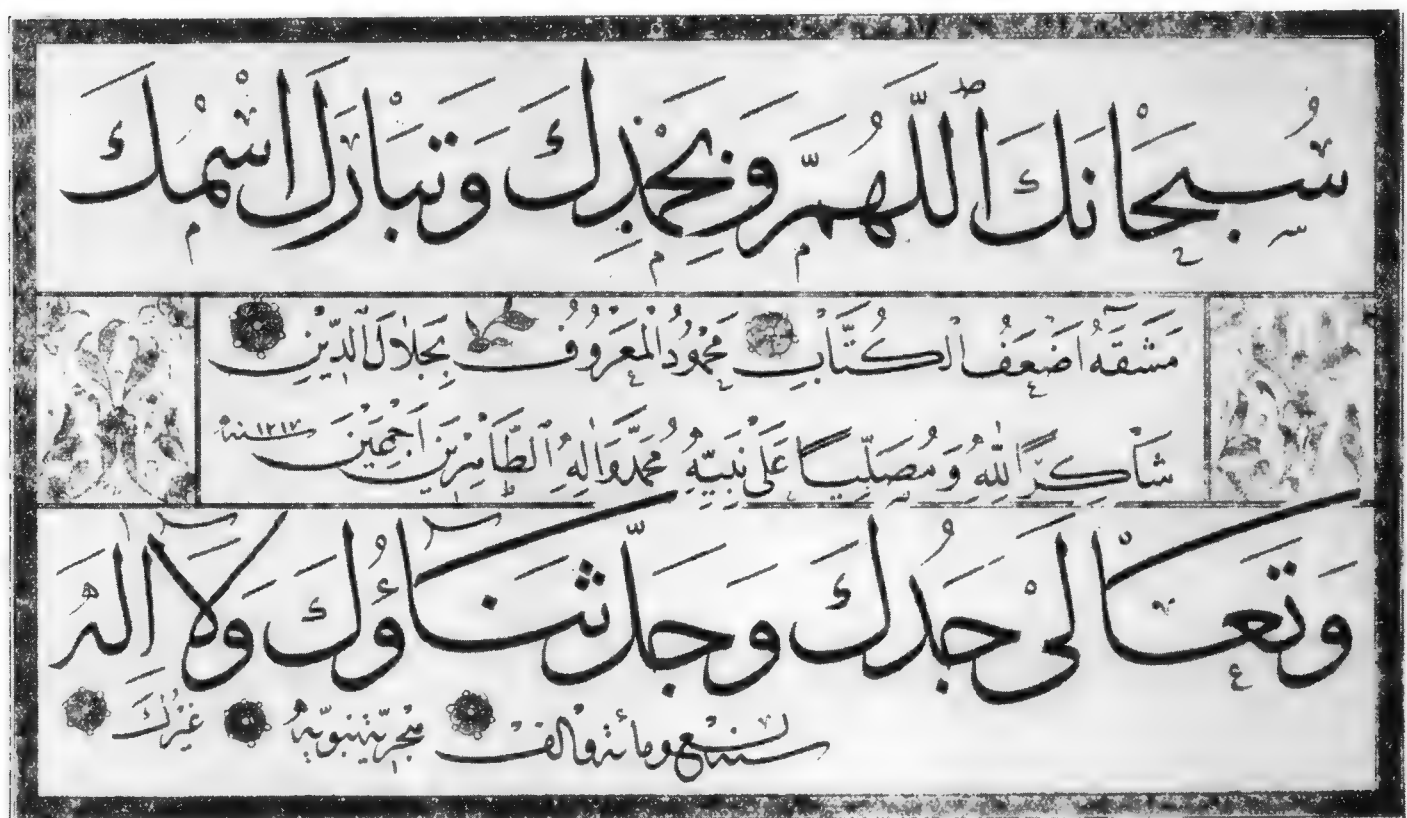 سُبْحَانَكَ ٱللّٰهُمَّ وَبِحَمْدِكَ وَتَبَارَكَ اسْمُكَ
مَشَقَهُ اَضْعَفُ الْكُتَّابِ مَحْمُودُ الْمَعْرُوفُ بِجَلَالِ الدِّينِ
شَاكِرًا لِلّٰهِ وَمُصَلِّيًا عَلٰى نَبِيِّهِ مُحَمَّدٍ وَاٰلِهِ الطَّاهِرِينَ اَجْمَعِينَ سنة ١٢١٧
وَتَعَالٰى جَدُّكَ وَجَلَّ ثَنَاؤُكَ وَلَا اِلٰهَ
غَيْرُكَ
سنة ومائة والف هجرية نبوية